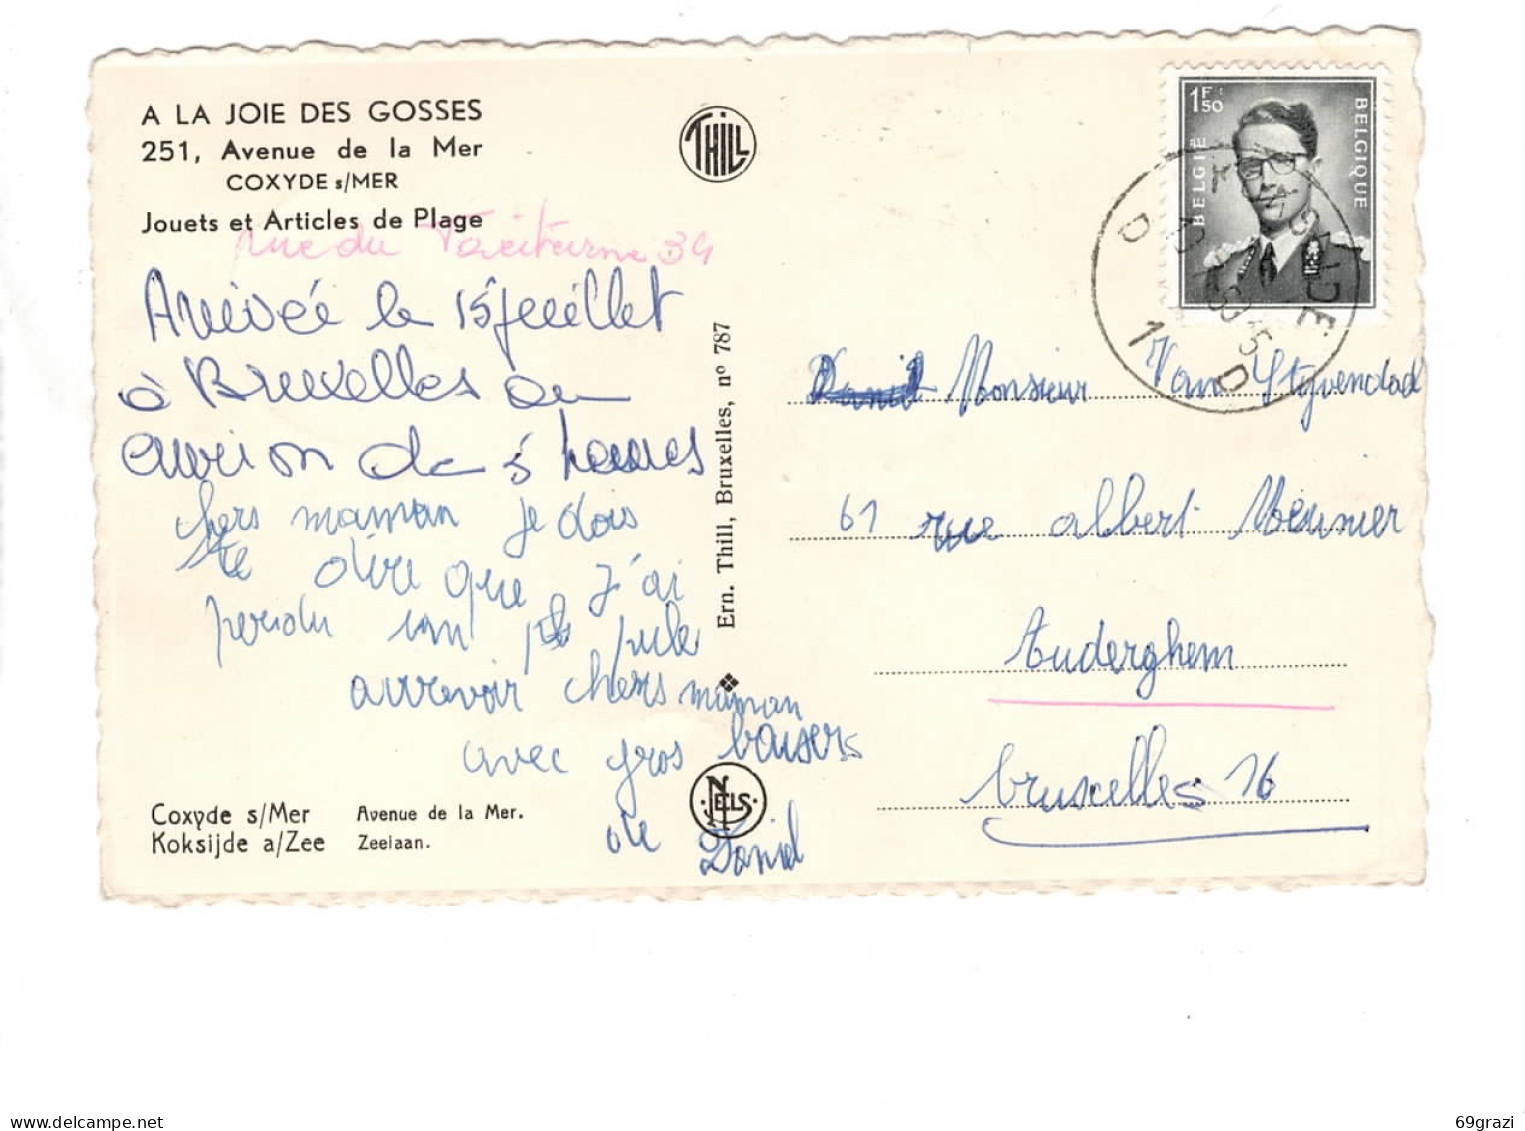 A LA JOIE DES GOSSES
251, Avenue de la Mer
COXYDE s/MER
Jouets et Articles de Plage
rue du Taciturne 34
Arrivée le 15 juillet
à Bruxelles en
avion de 5 heures
chers maman je dois
te dire que j'ai
perdu un pule
aurrevoir chers maman
avec gros baisers
Daniel
Coxyde s/Mer Avenue de la Mer.
Koksijde a/Zee Zeelaan.
THILL
Ern. Thill, Bruxelles, nº 787
NELS
1F:50
BELGIË
BELGIQUE
D 1 D
Monsieur Van Styvendad
61 rue albert Meunier
Auderghem
bruxelles 16
69grazi